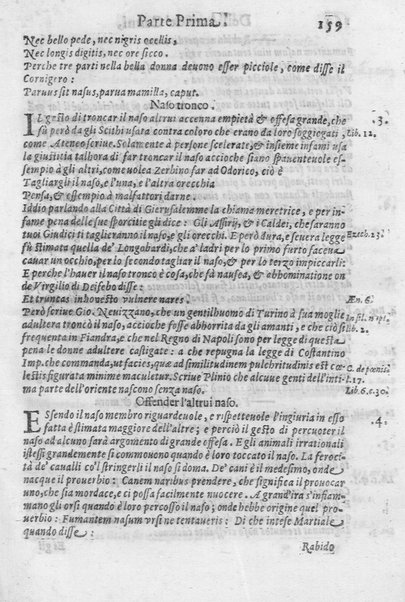 Parte Prima. 159
Nec bello pede, nec nigris ocellis,
Nec longis digitis, nec ore sicco.
Perche tre parti nella bella donna deuono esser picciole, come disse il
Cornigero:
Paruus sit nasus, parua mamilla, caput.
Naso tronco. .3.
IL gesto di troncar il naso altrui accenna empietà & offesa grande, che
fù però da gli Scithi usata contro coloro che erano da loro soggiogati, Lib. 12.
come Ateneo scriue. Solamente à persone scelerate, & insieme infami usa
la giustitia talhora di far troncar il naso accioche siano spauenteuole es-
sempio à gli altri, come uolea Zerbino far ad Odorico, ciò è
Tagliargli il naso, e l'una, e l'altra orecchia
Pensa, & essempio à malfattori darne.
Iddio parlando alla Città di Gierusalemme la chiama meretrice, e per in-
fame pena delle sue sporcitie gli dice: Gli Assirij, & i Caldei, che saranno
tuoi Giudici ti taglieranno il naso, e gli orecchi. E però dura, e seuera legge Ezech. 23.
fù stimata quella de' Longobardi, che a' ladri per lo primo furto faceua
cauar un occhio, per lo secondo tagliar il naso, & per lo terzo impiccarli:
E perche l'hauer il naso tronco è cosa, che fà nausea, & abbominatione on
de Virgilio di Deifebo disse:
Et truncas inhonesto vulnere nares. Æn. 6.
Però scriue Gio. Neuizzano, che un gentilhuomo di Turino à sua moglie In sil. n. ipl.
adultera troncò il naso, accioche fosse abborrita da gli amanti, e che ciò si lib. 2.
frequenta in Fiandra, e che nel Regno di Napoli sono per legge di questa
pena le donne adultere castigate: a che repugna la legge di Costantino
Imp. che commanda, ut facies, quæ ad similitudinem pulchritudinis est cœ- C. de pœnis
lestis figurata minime maculetur. Scriue Plinio che alcune genti dell'inti- l. 17.
ma parte dell'oriente nascono senza naso. Lib. 6. c. 30.
Offender l'altrui naso.
ESsendo il naso membro riguardeuole, e rispetteuole l'ingiuria in esso .4.
fatta è stimata maggiore dell'altre; e perciò il gesto di percuoter il
naso ad alcuno sarà argomento di grande offesa. E gli animali irrationali
istessi grandemente si commouono quando è loro toccato il naso. La feroci-
tà de' caualli co'l stringerli il naso si doma. De' cani è il medesimo, onde
nacque il prouerbio: Canem naribus prendere, che significa il prouocar
uno, che sia mordace, e ci possa facilmente nuocere. A grand'ira s'infiam-
mano gli orsi quando è loro percosso il naso; onde hebbe origine quel pro-
uerbio: Fumantem nasum vrsi ne tentaueris: Di che intese Martiale
quando disse:
Rabido